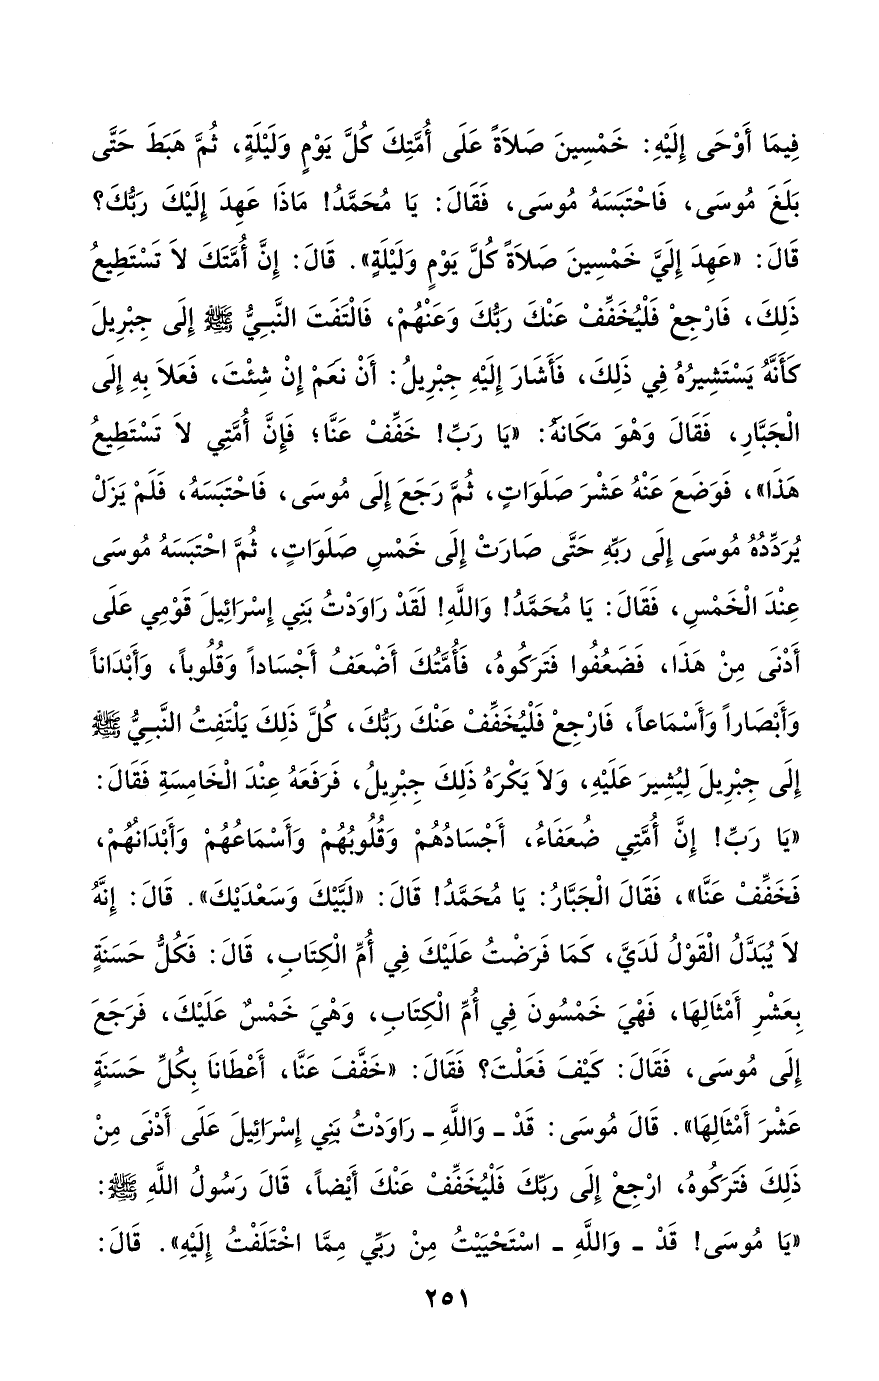 فِيمَا أَوْحَى إِلَيْهِ: خَمْسِينَ صَلاَةً عَلَى أُمَّتِكَ كُلَّ يَوْمٍ وَلَيْلَةٍ، ثُمَّ هَبَطَ حَتَّى
بَلَغَ مُوسَى، فَاحْتَبَسَهُ مُوسَى، فَقَالَ: يَا مُحَمَّدُ! مَاذَا عَهِدَ إِلَيْكَ رَبُّكَ؟
قَالَ: «عَهِدَ إِلَيَّ خَمْسِينَ صَلاَةً كُلَّ يَوْمٍ وَلَيْلَةٍ». قَالَ: إِنَّ أُمَّتَكَ لاَ تَسْتَطِيعُ
ذَلِكَ، فَارْجِعْ فَلْيُخَفِّفْ عَنْكَ رَبُّكَ وَعَنْهُمْ، فَالْتَفَتَ النَّبِيُّ ﷺ إِلَى جِبْرِيلَ
كَأَنَّهُ يَسْتَشِيرُهُ فِي ذَلِكَ، فَأَشَارَ إِلَيْهِ جِبْرِيلُ: أَنْ نَعَمْ إِنْ شِئْتَ، فَعَلاَ بِهِ إِلَى
الْجَبَّارِ، فَقَالَ وَهْوَ مَكَانَهُ: «يَا رَبِّ! خَفِّفْ عَنَّا؛ فَإِنَّ أُمَّتِي لاَ تَسْتَطِيعُ
هَذَا»، فَوَضَعَ عَنْهُ عَشْرَ صَلَوَاتٍ، ثُمَّ رَجَعَ إِلَى مُوسَى، فَاحْتَبَسَهُ، فَلَمْ يَزَلْ
يُرَدِّدُهُ مُوسَى إِلَى رَبِّهِ حَتَّى صَارَتْ إِلَى خَمْسِ صَلَوَاتٍ، ثُمَّ احْتَبَسَهُ مُوسَى
عِنْدَ الْخَمْسِ، فَقَالَ: يَا مُحَمَّدُ! وَاللَّهِ! لَقَدْ رَاوَدْتُ بَنِي إِسْرَائِيلَ قَوْمِي عَلَى
أَدْنَى مِنْ هَذَا، فَضَعُفُوا فَتَرَكُوهُ، فَأُمَّتُكَ أَضْعَفُ أَجْسَاداً وَقُلُوباً، وَأَبْدَاناً
وَأَبْصَاراً وَأَسْمَاعاً، فَارْجِعْ فَلْيُخَفِّفْ عَنْكَ رَبُّكَ، كُلَّ ذَلِكَ يَلْتَفِتُ النَّبِيُّ ﷺ
إِلَى جِبْرِيلَ لِيُشِيرَ عَلَيْهِ، وَلاَ يَكْرَهُ ذَلِكَ جِبْرِيلُ، فَرَفَعَهُ عِنْدَ الْخَامِسَةِ فَقَالَ:
«يَا رَبِّ! إِنَّ أُمَّتِي ضُعَفَاءُ، أَجْسَادُهُمْ وَقُلُوبُهُمْ وَأَسْمَاعُهُمْ وَأَبْدَانُهُمْ،
فَخَفِّفْ عَنَّا»، فَقَالَ الْجَبَّارُ: يَا مُحَمَّدُ! قَالَ: «لَبَّيْكَ وَسَعْدَيْكَ». قَالَ: إِنَّهُ
لاَ يُبَدَّلُ الْقَوْلُ لَدَيَّ، كَمَا فَرَضْتُ عَلَيْكَ فِي أُمِّ الْكِتَابِ، قَالَ: فَكُلُّ حَسَنَةٍ
بِعَشْرِ أَمْثَالِهَا، فَهْيَ خَمْسُونَ فِي أُمِّ الْكِتَابِ، وَهْيَ خَمْسٌ عَلَيْكَ، فَرَجَعَ
إِلَى مُوسَى، فَقَالَ: كَيْفَ فَعَلْتَ؟ فَقَالَ: «خَفَّفَ عَنَّا، أَعْطَانَا بِكُلِّ حَسَنَةٍ
عَشْرَ أَمْثَالِهَا». قَالَ مُوسَى: قَدْ ـ وَاللَّهِ ـ رَاوَدْتُ بَنِي إِسْرَائِيلَ عَلَى أَدْنَى مِنْ
ذَلِكَ فَتَرَكُوهُ، ارْجِعْ إِلَى رَبِّكَ فَلْيُخَفِّفْ عَنْكَ أَيْضاً، قَالَ رَسُولُ اللَّهِ ﷺ:
«يَا مُوسَى! قَدْ ـ وَاللَّهِ ـ اسْتَحْيَيْتُ مِنْ رَبِّي مِمَّا اخْتَلَفْتُ إِلَيْهِ». قَالَ:
٢٥١